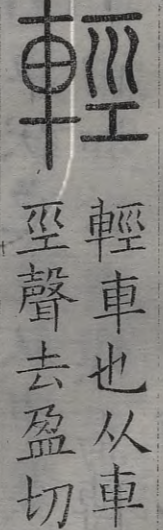 輕
輕車也从車
巠聲去盈切